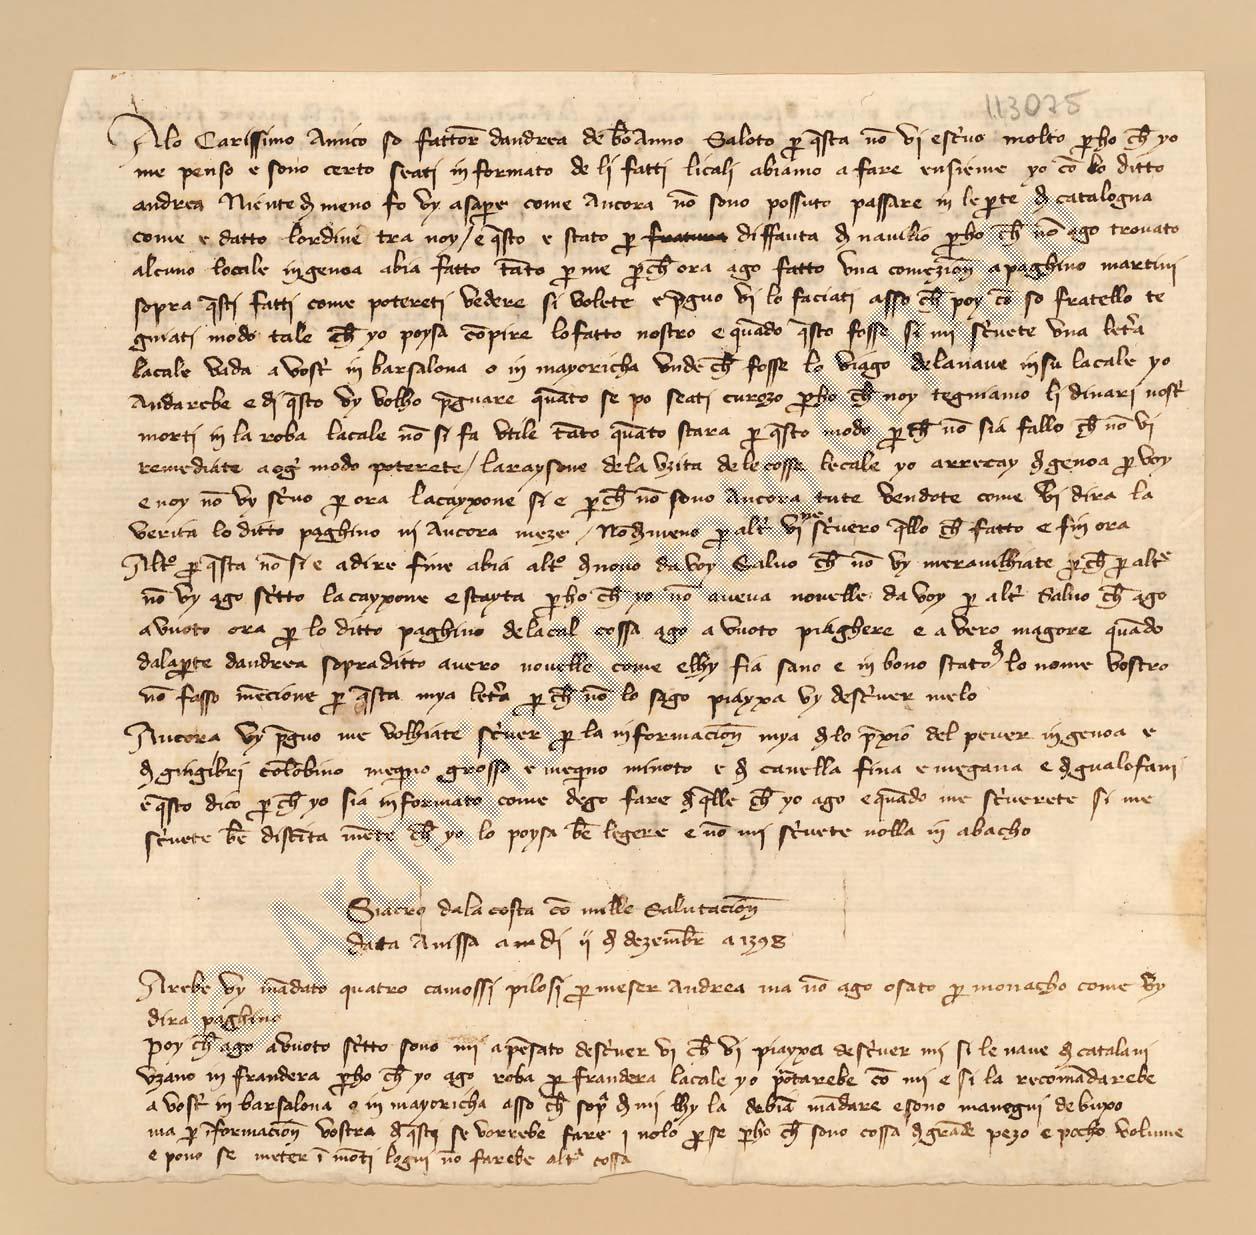 113075
Alo Carissimo Amico so fattor̄ dandrea de bōAnno Saloto p̱ q̄sta nō vi escruo molto p̱ho ch̄ yo
me penso e sono certo seati informato de li fatti licali abiamo a fare ensieme yo cō lo ditto
andrea Niente d̄ meno fo vy asap̱e come Ancora nō sono possuto passare in le p̱te d̄ catalogna
come e datto lordine tra noy / e q̄sto e stato p̱ diffauta d̄ navilio p̱ho ch̄ nō ago trouato
alcuno locale in genoa abia fatto tāto p̱ me p̱ch̄ ora ago fatto vna comezion̄ a paghino martini
sopra q̄sti fatti come potereti vedere si volete e p̄guo vi lo faciati asso ch̄ poy cō so fratello te
gniati modo tale ch̄ yo poysa cōpire lo fatto nostro e quādo q̄sto fosse si mi scrivete vna let̄a
lacale vada a vost̄ in barsalona o in mayoricha vnde ch̄ fosse lo viago delanaue insu lacale yo
Andarebe e di q̄sto vy volho p̄guare quāto se po seati curozo p̱ho ch̄ noy tegniamo li dinari nost̄
morti in la roba lacale nō si fa vtile tāto quāto stara p̱ q̄sto modo p̱ch̄ nō sia fallo ch̄ nō vi
remediate a oḡ modo poterete / laraysone de la vzita dele cosse lecale yo arrecay d̄ genoa p̱ voy
e noy nō vy scruo p̱ ora lacayxone si e p̱ch̄ nō sono Ancora tute vendote come v̄i dira la
verita lo ditto paghino ni Ancora meze / Nōd̄meno p̱ alt̄ vi ne scruero q̄llo ch̄ fatto e fin ora
Alt̊ p̱ q̄sta nō si e a dire fine abia alt̊ d̄ nouo da voy Saluo ch̄ nō vy merauilhiate p̱ch̄ p̱ alt̄e
nō vy ago sc̄tto lacayxone e stayta p̱ho ch̄ yo nō aueua nouelle da voy p̱ alt̄ Saluo ch̄ ago
avuoto ora p̱ lo ditto paghino delacal cossa ago avuoto piaghere e avero magore quādo
dalap̱te dandrea sopraditto auero nouelle come elhy sia sano e in bono stato d̄ lo nome vostro
nō fasso mēcione p̱ q̄sta mya let̄a p̱ch̄ nō lo sago piayxa vy descruer melo
Ancora vy p̄guo me volhiate scruer p̱ la informacion̄ mya d̄ lo p̄xio del peuer in genoa e
d̄ gingibri colōbino meq̄no grosso e meq̄no minoto e d̄ canella fina e megana e d̄ gualofani
e q̄sto dico p̱ch̄ yo sia informato come dego fare d̄ q̄lle ch̄ yo ago e quādo me scruerete si me
scriuete bē distīta mēte ch̄ yo lo poysa bē legere e nō mi scriuete nolla in abacho
Siacro dala costa cō mille Salutacion̄
data A nissa a m di ij d̄ dezembr̄ a 1398
Arebe vy mādato quatro camossi pilosi p̱ meser Andrea ma nō ago osato p̱ monacho come v̄y
dira paghino
Poy ch̄ ago avuoto sc̄tto sono mi a pēsato descruer vi ch̄ vi piayxa descruer mi si le naue d̄ catalani
vzano in frandera p̱ho ch̄ yo ago roba p̱ frandera lacale yo portarebe cō mi e si la recomādarebe
a vost̄ in barsalona o in mayoricha asso ch̄ sop̱ d̄ mi lhy la debiā mādare e sono manegui de buxo
ma p̱ īformacion̄ vostra d̄ q̄sti se vorrebe fare j nolo p̱ se p̱ho ch̄ sono cossa d̄ grāde pezo e pocho volume
e pono se meter ī moti loghi nō farebe alt̄ cossa